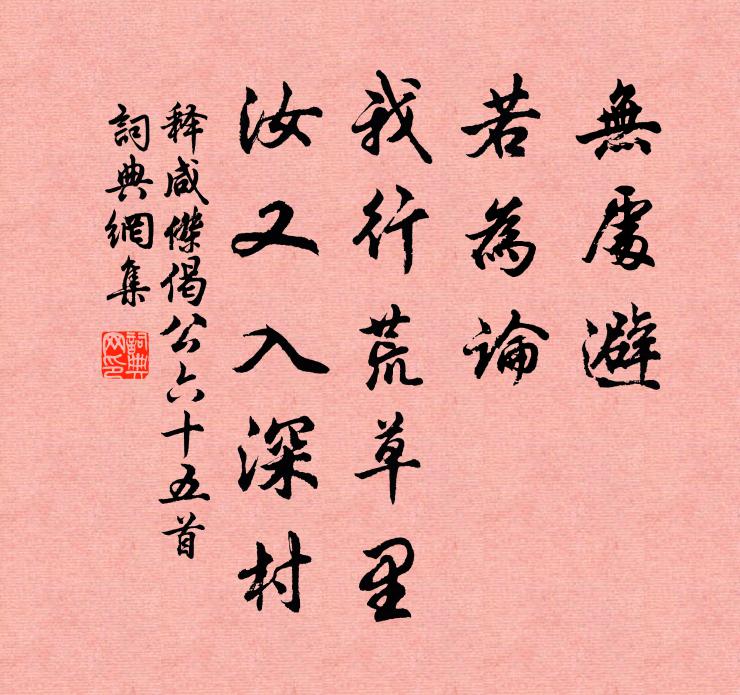 無處避
若為論
我行荒草里
汝又入深村
释咸傑偈公六十五首
詞典網集
詞典網印